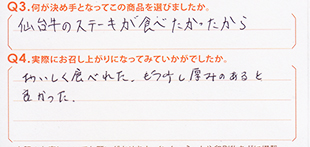 Q3.何が決め手となってこの商品を選びましたか。
仙台牛のステーキが食べたかったから
Q4.実際にお召し上がりになってみていかがでしたか。
おいしく食べれた。もう少し厚みのあると
良かった.